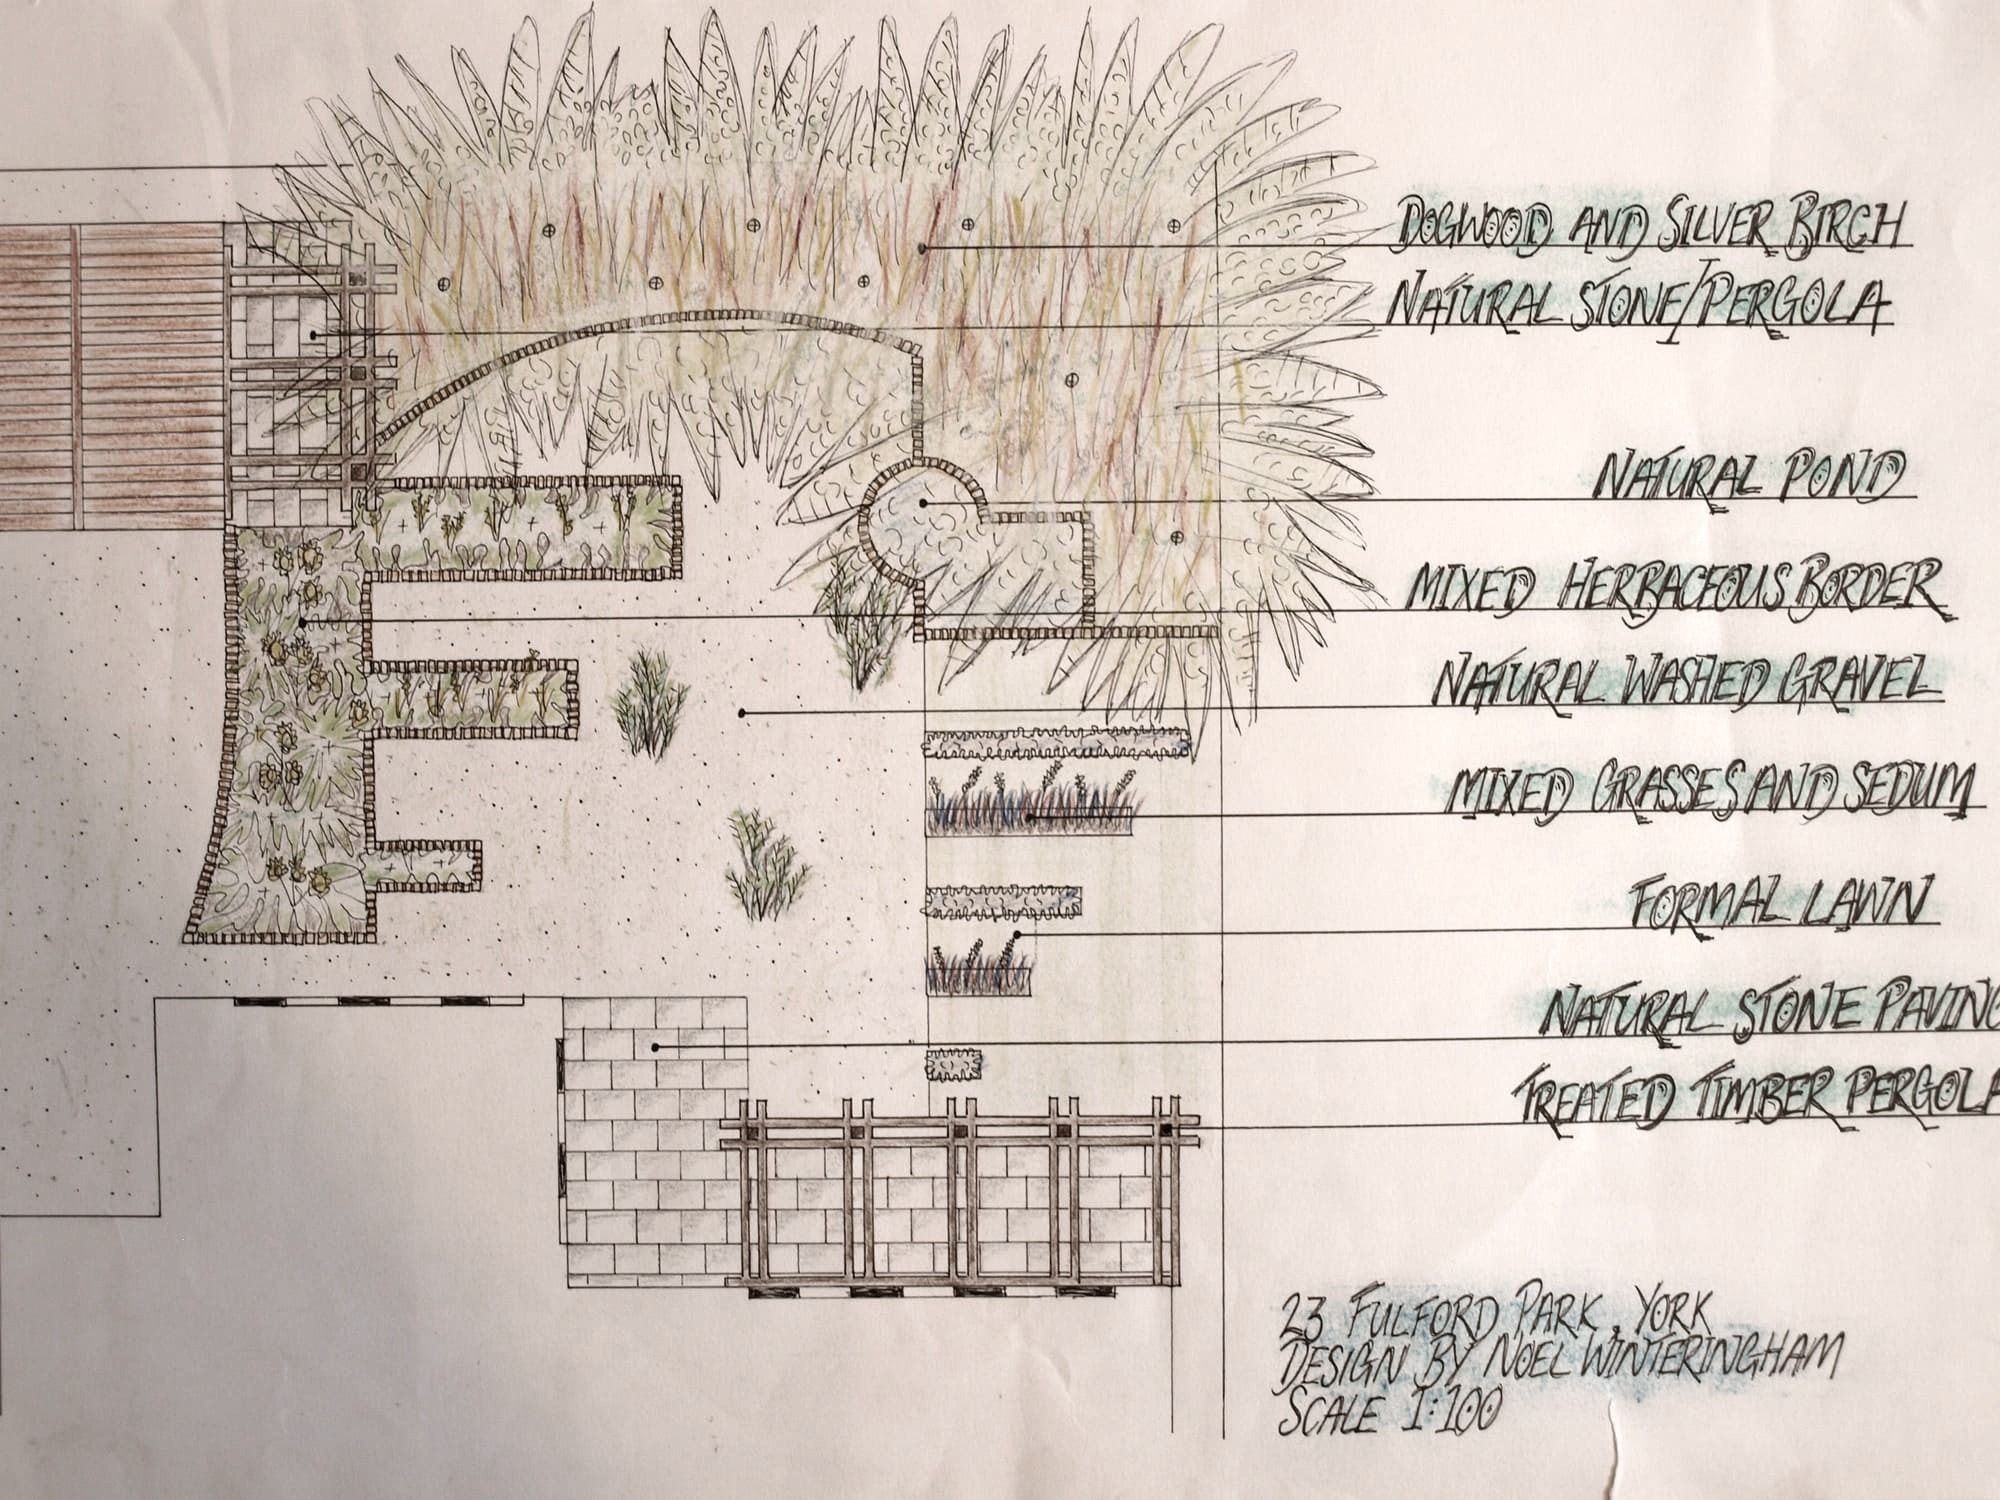 DOGWOOD AND SILVER BIRCH
NATURAL STONE/PERGOLA
NATURAL POND
MIXED HERBACEOUS BORDER
NATURAL WASHED GRAVEL
MIXED GRASSES AND SEDUM
FORMAL LAWN
NATURAL STONE PAVING
TREATED TIMBER PERGOLA
23 FULFORD PARK, YORK
DESIGN BY NOEL WINTERINGHAM
SCALE 1:100